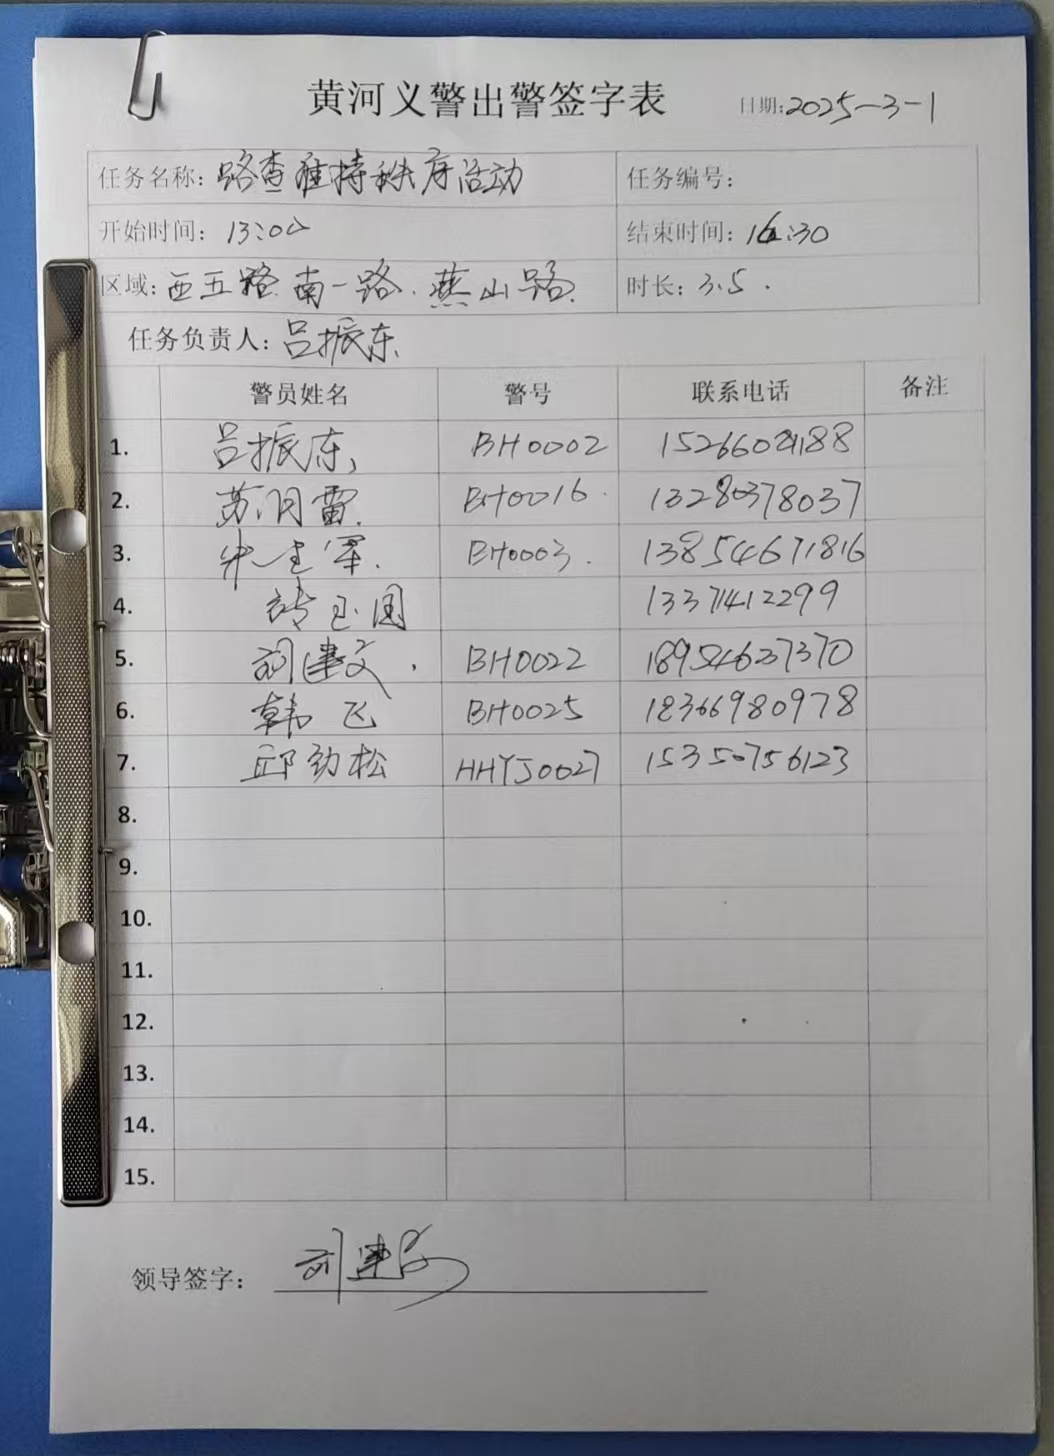 黄河义警出警签字表
日期:2025-3-1
任务名称: 路查维持秩序活动 任务编号:
开始时间: 13:00 结束时间: 16:30
区域: 西五路 南一路. 燕山路. 时长: 3.5.
任务负责人: 吕振东
警员姓名 警号 联系电话 备注
1. 吕振东 BH0002
2. 苏月雷 BH0016 13280378037
3. BH0003. 13854671816
4. 玉国 13371412299
5. 刘建文 BH0022 18954627370
6. 韩飞 BH0025 18366980978
7. 邱劲松 HHYJ0027 15350756123
8.
9.
10.
11.
12.
13.
14.
15.
领导签字: 刘建